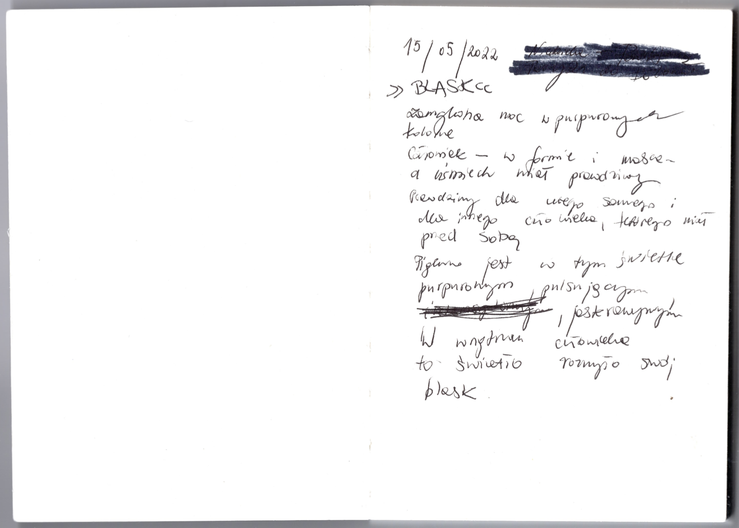 15/05/2022
>> BLASK <<
zamglona noc w purpurowych
kolorze
Człowiek – w formie i masce
a uśmiech miał prawdziwy
Prawdziwy dla niego samego i
dla innego człowieka, którego miał
przed sobą
jest w tym świetle
purpurowym, pulsującym
, jaskrawym
W wnętrzu człowieka
to światło rozmyło swój
blask.